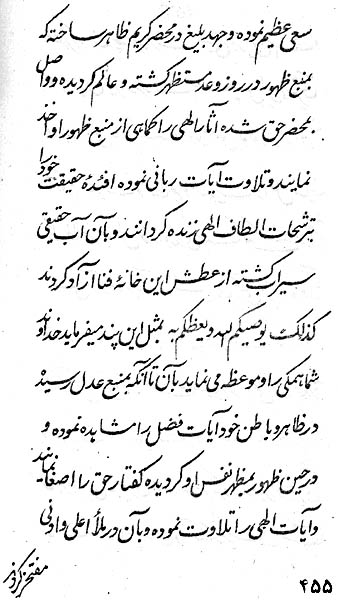 سعی عظیم نموده و جهد بلیغ در محضر کریم ظاهر ساخته که
بمنبع ظهور در روز وعد مستظهر کشته و عالم کردیده و واصل
بمحضر حق شده آثار الهی را کماهی از منبع ظهور او اخذ
نمایند و تلاوت آیات ربانی نموده افئدهٔ حقیقت خود را
بترشحات الطاف الهی زنده کردانند و بآن آب حقیقی
سیراب کشته از عطش این خانهٔ فنا آزاد کردند
کذالک یوصیکم الله و یعظکم به بمثل این پند میفرماید خداوند
شما همکی را و موعظه می نماید بآن تا آنکه بمنبع عدل رسیده
در ظاهر و باطن خود آیات فضل را مشاهده نموده و
در حین ظهور بمظهر نفس او کردیده کفتار حق را اصغا نمایند
و آیات الهی را تلاوت نموده و بآن در ملأ اعلی و ادنی
مفتخر کردند
۴۵۵